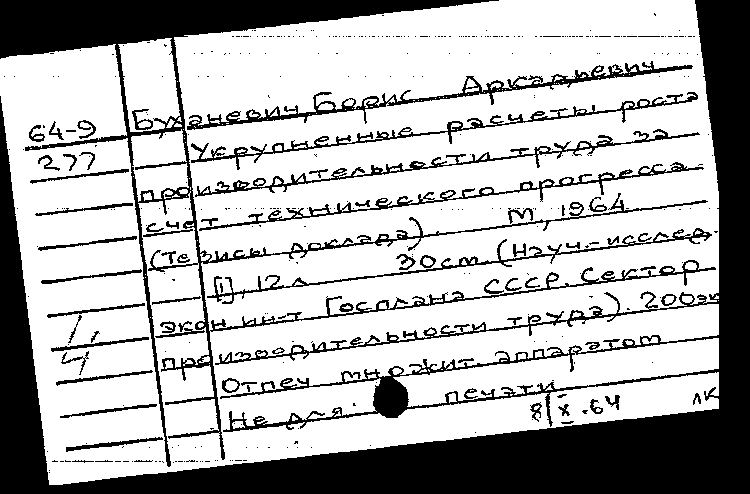 64-9 Буханевич, Борис Аркадьевич
277 Укрупненные расчеты роста
производительности труда за
счет технического прогресса
(Тезисы доклада). М, 1964
[1], 12 л 30 см. (Науч.-исслед.
экон. ин-т Госплана СССР. Сектор
производительности труда). 200 эк
Отпеч множит. аппаратом
Не для печати
8/X.64 лк